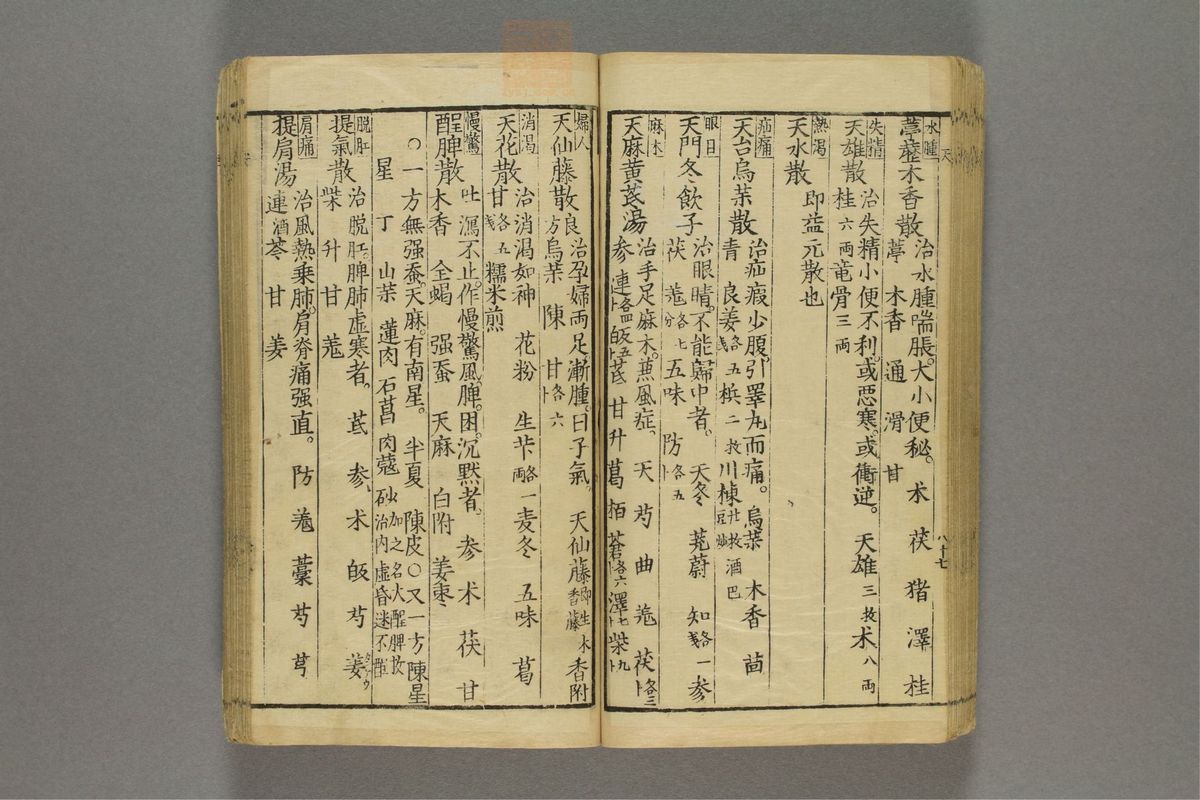 水腫
葶藶木香散
治水腫喘脹。大小便秘。 术 茯 猪 澤 桂
葶 木香 通 滑 甘
失精
天雄散
治失精小便不利。或惡寒。或衝逆。 天雄 三枚 术 八両
桂 六両 竜骨 三両
熱渇
天水散
即益元散也
疝痛
天台烏茱散
治疝瘕少腹引睪丸而痛。 烏茱 木香 茴
青 良姜 各五戔 梹 二枚 川楝 酒 巴
眼目
天門冬飲子
治眼睛。不能歸中者。 天冬 茺蔚 知 各一戔 参
茯 羗 各七分 五味 防 各五卜
麻木
天麻黄茋湯
治手足麻木。蕉風症。 天 芍 曲 羗 茯 各三卜
参 連 各四卜 皈 五卜 茋 甘 升 葛 栢 蒼 各六卜 澤 七卜 柴 九卜
婦人
天仙藤散 良方
治孕婦両足漸腫。曰子氣。 天仙藤 即生木香藤 香附
烏茱 陳 甘 各六卜
消渇
天花散
治消渇如神 花粉 生苄 各一両 麦冬 五味 葛
甘 各五戔 糯米煎
慢驚
醒脾散
吐瀉不止。作慢驚風。脾困。沉默者。 参 术 茯 甘
木香 全蝎 强蚕 天麻 白附 姜棗
○一方無强蚕。天麻。有南星。半夏 陳皮○又一方陳星
星 丁 山茱 蓮肉 石菖 肉蔲 砂 加之名大醒脾散 治内虛昏迷不醒
脱肛
提氣散
治脱肛。脾肺虚寒者。 茋 参 术 皈 芍 姜
柴 升 甘 羗
肩痛
提肩湯
治風熱乗肺。肩脊痛强直。 防 羗 藁 芍 芎
連 酒 苓 甘 姜
天
八十七